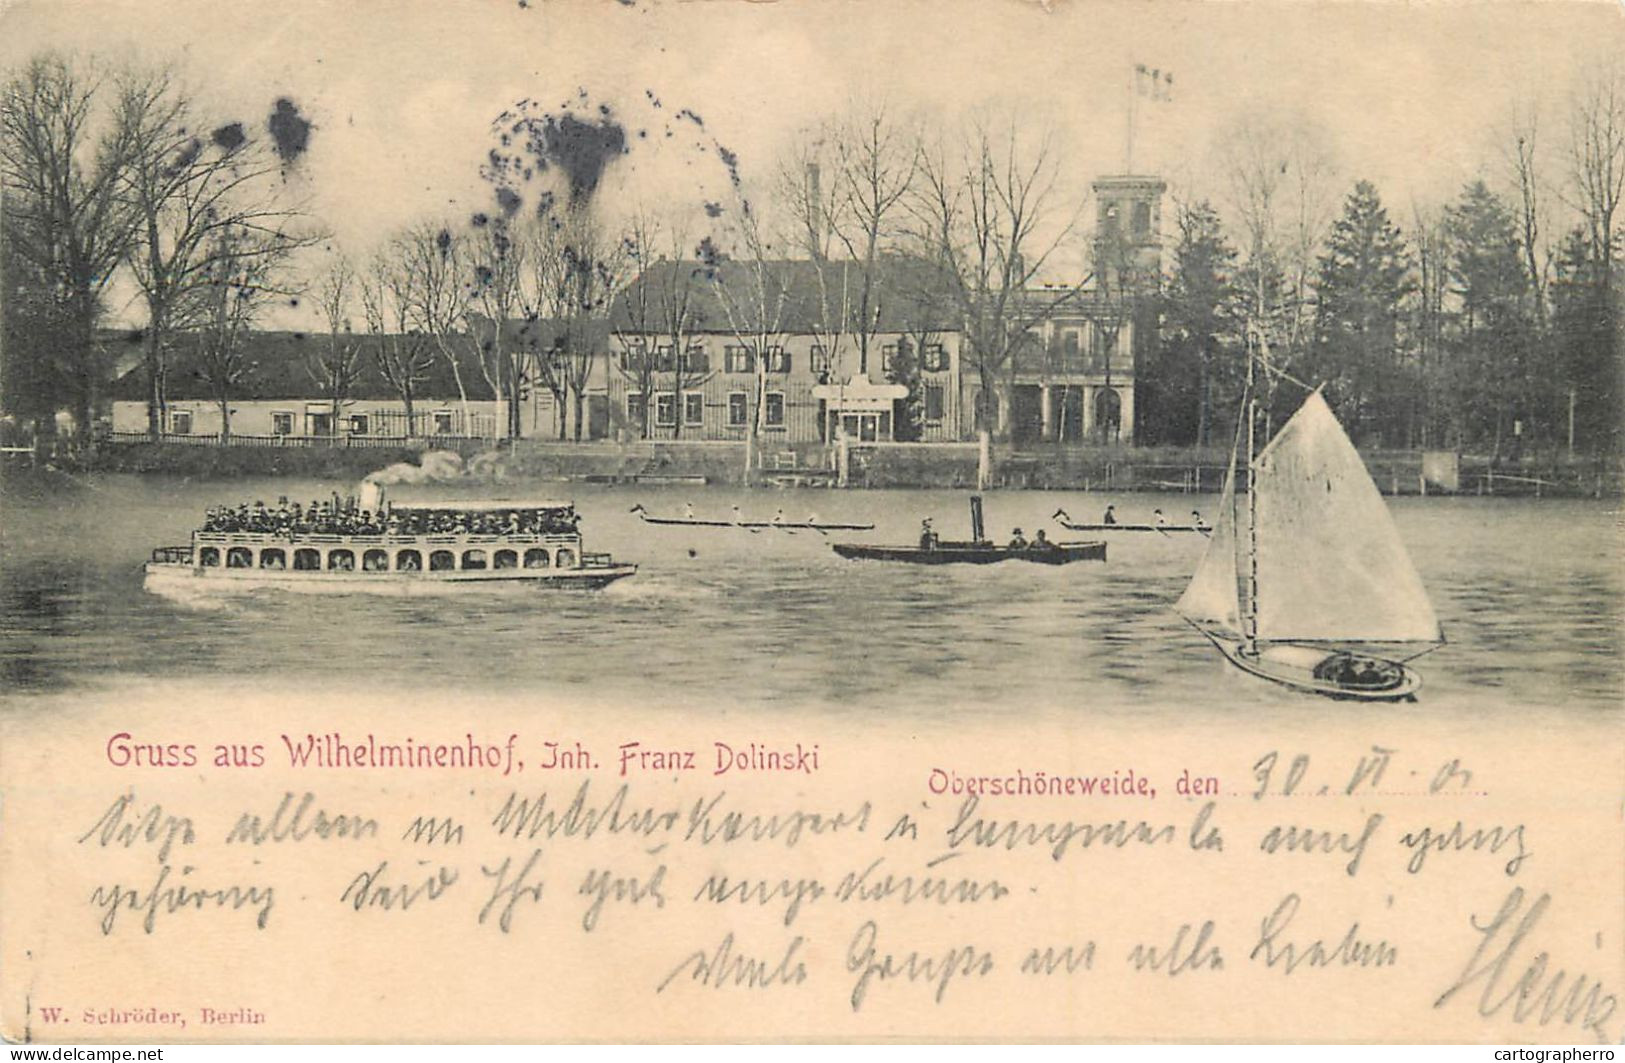 Gruss aus Wilhelminenhof, Inh. Franz Dolinski
Oberschöneweide, den 30. VI. 01
Sitze allein im Militärkonzert u langweile mich ganz
gehörig. Seid Ihr gut angekommen.
Viele Grüße an alle Lieben Heinz
W. Schröder, Berlin
delcampe.net
cartographerro